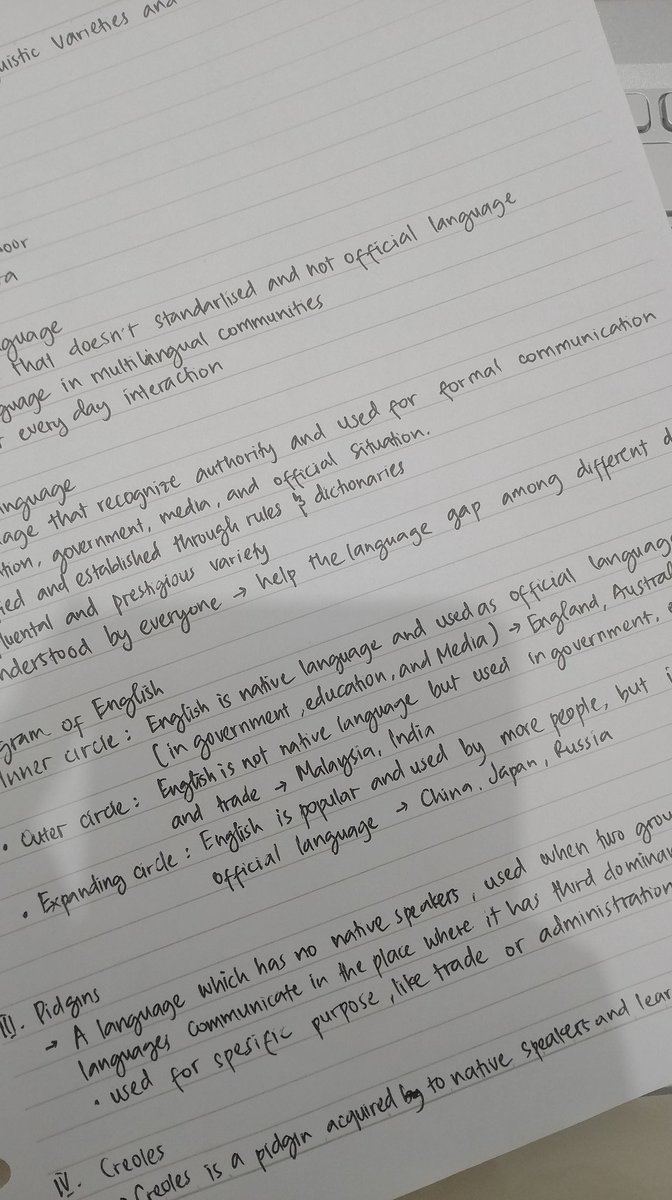 uistic Varieties and
oor
ra
guage
that doesn't standarlised and not official language
guage in multilingual communities
every day interaction
anguage
age that recognize authority and used for formal communication
tion, government, media, and official situation.
ied and established through rules & dictionaries
luental and prestigious variety
nderstood by everyone → help the language gap among different d
gram of English
Inner circle : English is native language and used as official language
(in government, education, and Media) → England, Austral
• Outer circle : English is not native language but used in government, e
and trade → Malaysia, India
• Expanding circle : English is popular and used by more people, but i
official language → China, Japan, Russia
III. Pidgins
→ A language which has no native speakers, used when two grou
languages communicate in the place where it has third dominan
• used for spesific purpose, like trade or administration
IV. Creoles
• Creoles is a pidgin acquired to native speakers and lear